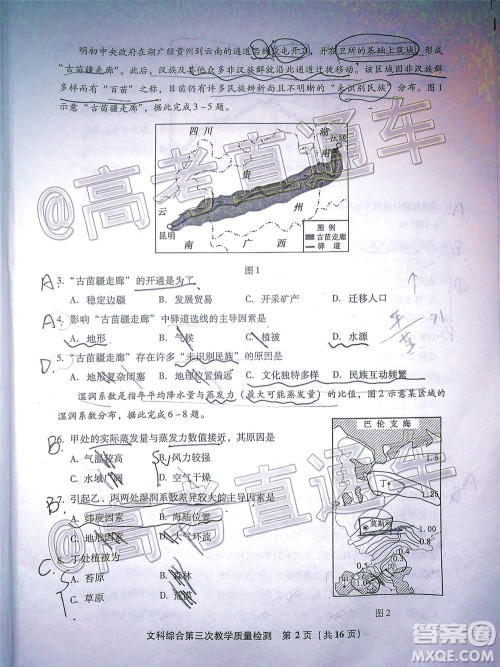 明初中央政府在湖广经贵州到云南的通道沿线设屯开卫，并在卫所的基础上筑城，形成
“古苗疆走廊”。此后，汉族及其他众多非汉族群就沿此通道迁徙移动。该区域因非汉族群
多样而有“百苗”之称，目前仍有许多民族辨析尚且不明晰的“未识别民族”分布。图1
示意“古苗疆走廊”，据此完成3-5题。
四川
湖
南
沅陵
贵
州
云
南
昆明
广西
图例
古苗疆走廊
驿道
图1
A
3.“古苗疆走廊”的开通是为了
A. 稳定边疆 B. 发展贸易 C. 开采矿产 D. 迁移人口
A
4. 影响“古苗疆走廊”中驿道选线的主导因素是
A. 地形 B. 气候 C. 植被 D. 水源
D.
5.“古苗疆走廊”存在许多“未识别民族”的原因是
A. 地形复杂闭塞 B. 地理位置偏远 C. 文化独特多样 D. 民族互动频繁
湿润系数是指年平均降水量与蒸发力（最大可能蒸发量）的比值，图2示意某区域的
湿润系数分布，据此完成6-8题。
B
6. 甲处的实际蒸发量与蒸发力数值接近，其原因是
A. 气温较高 B. 风力较强
C. 水域广阔 D. 空气干燥
B
7. 引起乙、丙两处湿润系数差异较大的主导因素是
A. 纬度因素 B. 海陆位置
C. 地形因素 D. 大气环流
C.
8. 丁处植被为
A. 苔原 B. 森林
C. 草原 D.
巴伦支海
丁
1.5
1.25
莫斯科
1.00
0.8
0.6
0.4
图2
文科综合第三次教学质量检测 第2页（共16页）
@高考直通车
@高考直通车
@高考直通车
答案圈
MXQE.COM